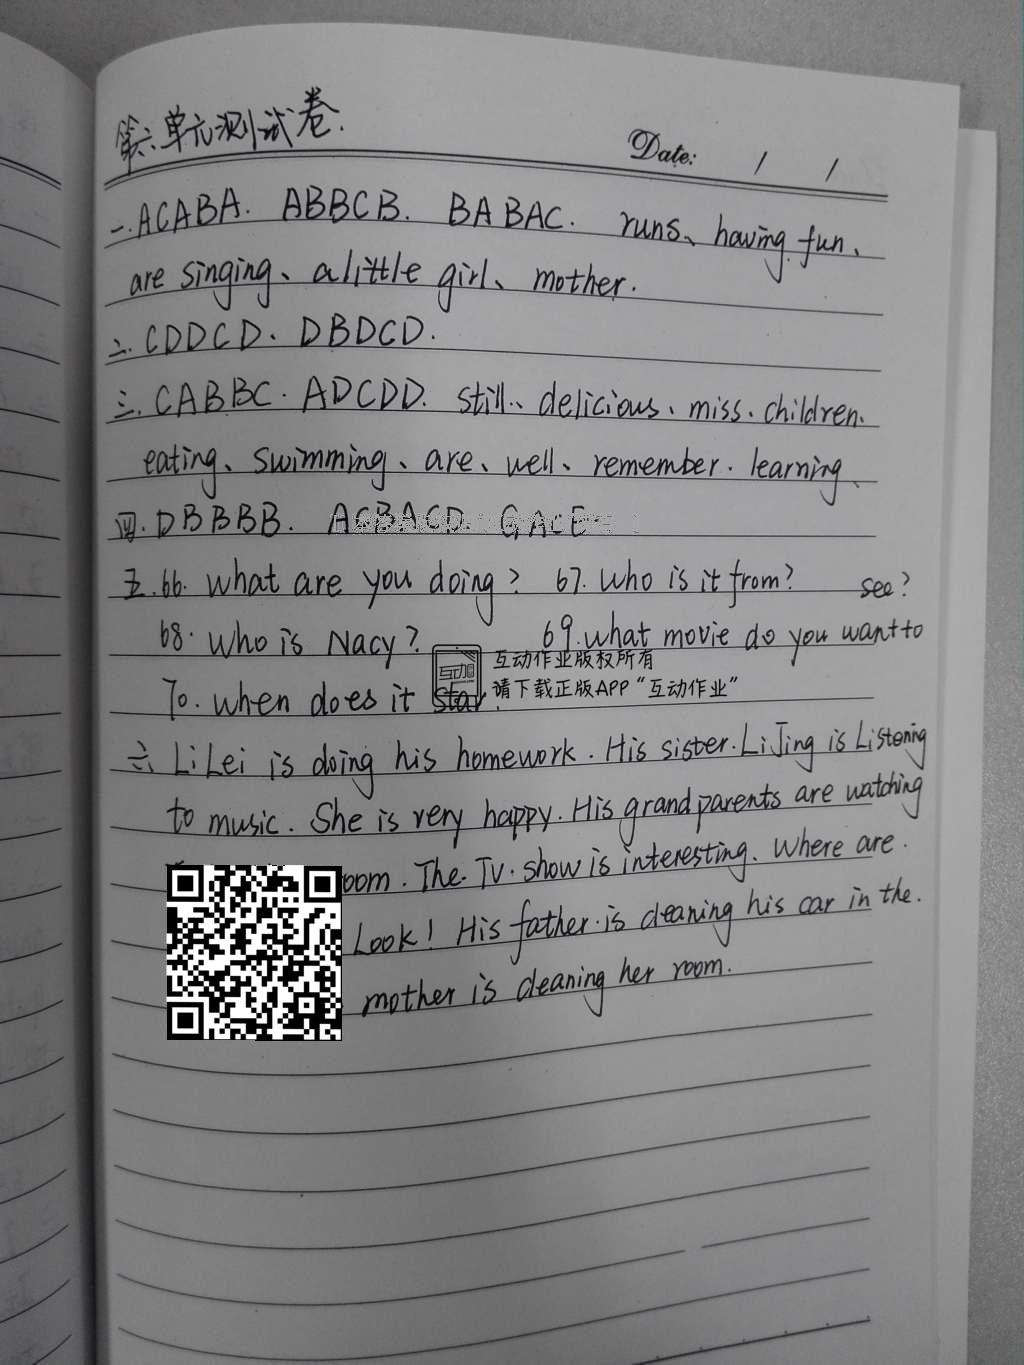 第六单元测试卷.
Date: / /
一. ACABA. ABBCB. BABAC. runs、having fun、
are singing、a little girl、mother.
二. CDDCD. DBDCD.
三. CABBC. ADCDD. still、delicious、miss、children、
eating、swimming、are、well、remember. learning、
四. DBBBB. ACBACD. GACE
五. 66. What are you doing? 67. Who is it from?
68. Who is Nacy? 69. What movie do you want to see?
互动作业版权所有
70. When does it star
请下载正版APP“互动作业”
六. Li Lei is doing his homework. His sister. Li Jing is Listening
to music. She is very happy. His grandparents are watching
oom. The. TV. show is interesting. Where are.
Look! His father is cleaning his car in the.
mother is cleaning her room.